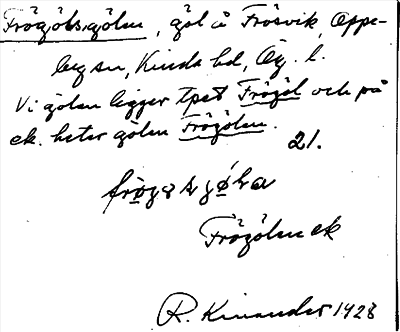 Frögölsgölen, göl å Frösvik, Oppe-
by sn, Kinda hd, Ög. l.
Vi gölen ligger tpet Frögöl och på
ek. heter gölen Frögölen.
21.
Frögölen ek
R. Kinander 1928